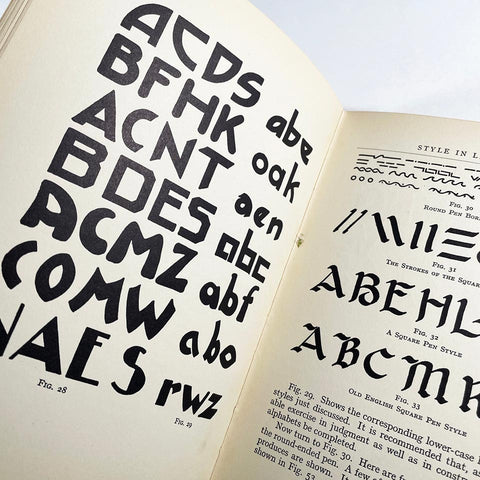 ACDS abe
BFHK oak
ACNT aen
BDES abc
ACMZ abf
COMW abo
NAES rwz
Fig. 28
Fig. 29
STYLE IN L
Fig. 30
Round Pen Bor
Fig. 31
The Strokes of the Square
ABEHL
Fig. 32
A Square Pen Style
ABCMR
Fig. 33
Old English Square Pen Style
Fig. 29. Shows the corresponding lower-case
styles just discussed. It is recommended that, a
able exercise in judgment as well as in constr
alphabets be completed.
Now turn to Fig. 30. Here are f
the round-ended pen. A few of
produces are shown. It
shown in Fig. 53